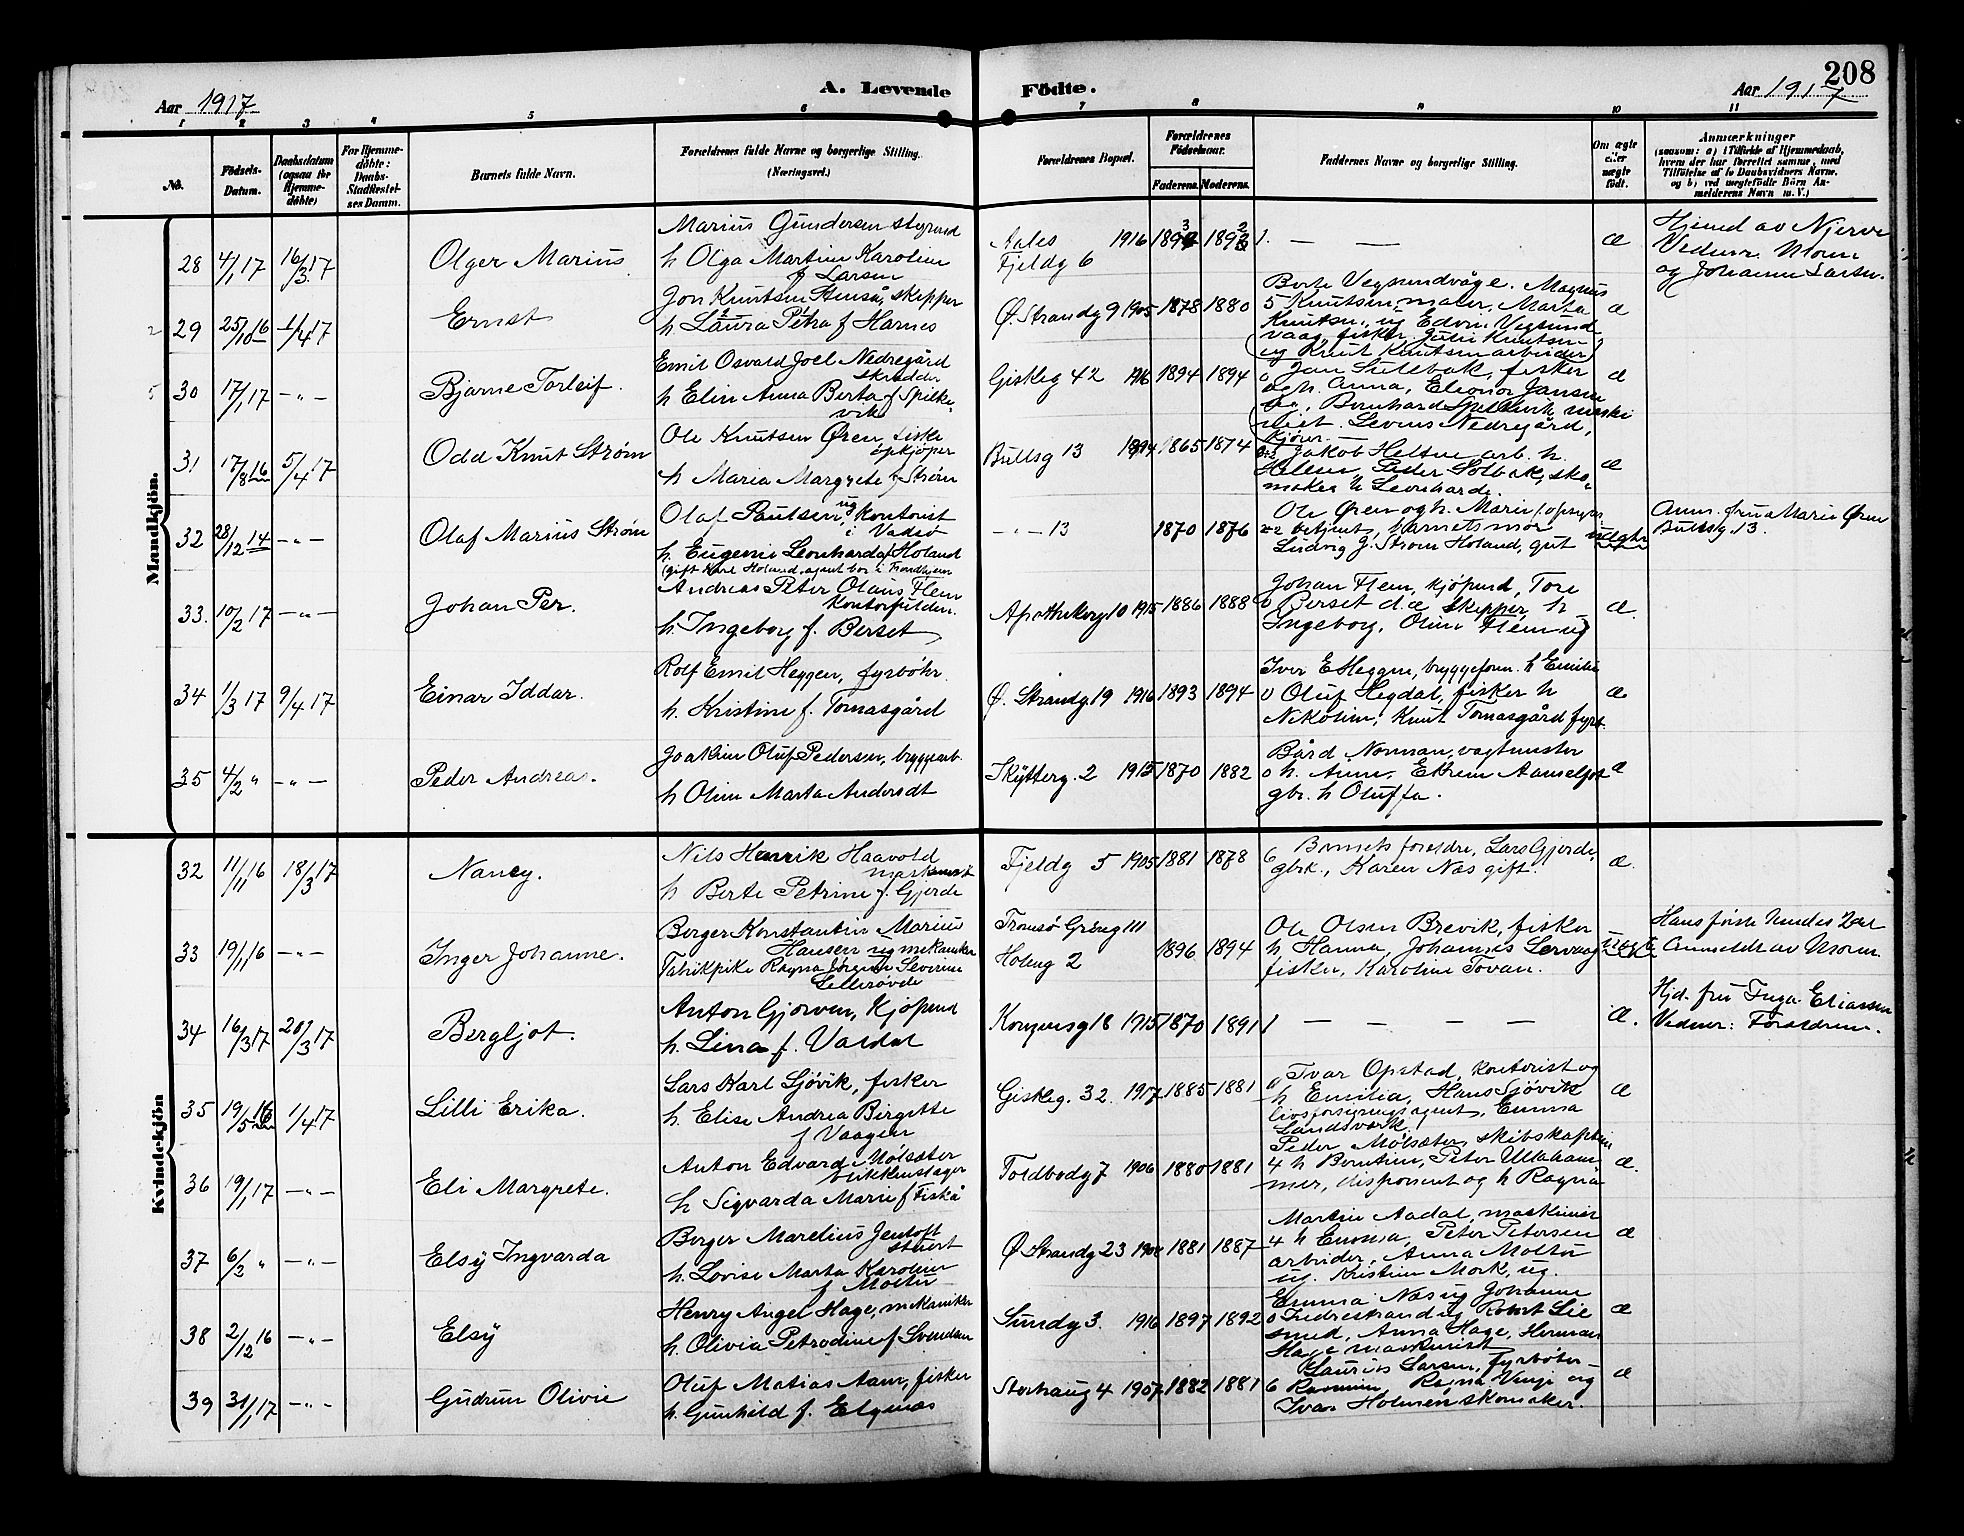 208
Aar 1917
A. Levende
Födte.
Aar 1917
1 2 3 4 5 6 7 8 9 10 11
No.
Födsels-
Datum.
Daabsdatum
(ogsaa for
Hjemme-
döbte)
For Hjemme-
döbte:
Daabs-
Stadfæstel-
ses Datum.
Barnets fulde Navn.
Forældrenes fulde Navne og borgerlige Stilling.
(Næringsvei.)
Forældrenes Bopæl.
Forældrenes
Födselsaar.
Faderens. Moderens.
Faddernes Navne og borgerlige Stilling.
Om ægte
eller
uægte
födt.
Anmærkninger
(saasom: a) i Tilfælde af Hjemmedaab,
hvem der har forrettet samme, med
Tilföielse af to Daabsvidners Navne,
og b) ved uægtefödte Börn An-
melderens Navn m. V.)
Mandkjön.
28 4/1 17 16/3 17 Olger Marius
Marius Gundersen styrmd
h Olga Martine Karoline
f Larsen
Aales 1916
Fjeldg 6
1893 1892 1. — — æ
Hjemd av
Vedner. Moren
og Johanne Larsen.
29 25/10 16 1/4 17 Ernst
Jon Knutsen Stenså, skipper
h Laura Petra f Harnes
Ø. Strandg 9 1905 1878 1880
Berte Vegsundvåge. Magnus
5 Knutsen, maler, Marta æ
Knutsen, ug Edvin Vegsund
vaag, fisker, Julie Knutsen
og Knut Knutsen arbeider
30 17/1 17 —"— Bjarne Torleif.
Emil Osvald Joel Nedregård
skrædder
h Elin Anna Berta f Spilke-
vik
Giskeg 42 1916 1894 1894
fisker æ
og h. Anna, Eleonor Jansen
Bernhard Spilkevik maski
nist. Levius Nedregård,
31 17/8 16 5/4 17 Odd Knut Strøm
Ole Knutsen Øren, fiske
opkjøper
h Maria Margrete f Strøm
Bullsg 13 1865 1874
Jakob Helsem arb. h.
Helene, Peder Solbak, sko- æ
maker h Leonharde.
32 28/12 14 —"— Olaf Marius Strøm
Olaf Paulsen, ug kontorist
i Vadsø
h. Eugenie Leonharda f Holand
(gift Karl Holand, agent bor i Trondhjem
—"— 13 1870 1876
Ole Øren og h. Marie
betjent, barnets mor
Ludvig J. Strøm Holand, gut uægte
Anm. frua Marie Øren
Bullsg. 13.
33. 10/2 17 —"— Johan Per.
Andreas Peter Olaus Flem
Kontorfuldm.
h. Ingeborg f. Berset
Apothekerg 10 1915 1886 1888
Johan Flem, kjøpmd, Tore
0 Berset d.æ skipper, h æ.
Ingeborg, Oline Flem ug
34 1/3 17 9/4 17 Einar Iddar.
Rolf Emil Heggen, fyrbøhr.
h. Kristine f. Tomasgård
Ø. Strandg. 19 1916 1893 1894
Iver E Heggen, bryggeform. h Emilie
0 Oluf Hegdal, fisker h æ
Nikoline, Knut Tomasgård fyrb.
35 4/2 " —"— Peder Andreas.
Joakim Oluf Pedersen, bryggearb.
h Oline Marta Andersdt
Skÿtterg. 2 1915 1870 1882
Bård Norman, vagtmester
0 h. Anne, Ekrem æ
gbr. h Oluffa.
Kvindekjön
32 11/11 16 18/3 17 Nancy.
Nils Henrik Haavold
maskinist
h Berte Petrine f. Gjerde
Fjeldg 5 1905 1881 1878
6 Barnets foreldre, Lars Gjerde,
gbrk., Karen Næs gift. æ.
33 19/11 16 —"— Inger Johanne.
Berger Konstantin Marius
Hansen ug mekaniker
Fabrikpike Ragna Jørgine Severine
Lillerøvde
Tromsø Grøneg 111
Holeng 2 1896 1894
Ole Olsen Brevik, fisker
h, Hanna, Johannes Lervaag uægte
fisker, Karoline Tovan.
Hans første hendes 2det
Anmeldt av Moren.
34 16/3 17 20/3 17 Bergljot.
Anton Gjørven, Kjøpmd
h. Lina f. Vardal
Kongensg 18 1915 1870 1891 1 — — — — æ.
Hjd. fru Inga Eliassen
Vedner: Forældrene.
35 19/5 16 1/4 17 Lilli Erika.
Lars Karl Sjövik, fisker
h. Elise Andrea Birgitte
f Vaagen
Giskeg. 32. 1917 1885 1881
0 Ivar Opstad, kontorist og
h Emilia, Hans Sjövik æ
livsforsikringsagent, Emma
Landsværk.
36 19/1 17 —"— Eli Margrete.
Anton Edvard Molsæter
blikkenslager
h Sigvarda Marie f Fiskå
Toldbodg 7 1906 1880 1881
Peder Molsæter, skibskaptein
4 h Berntine, Peter Ullaham- æ.
mer, disponent og h Ragna
37 6/2 " —"— Elsÿ Ingvarda
Berger Marelius Jentoft
stuert
h. Lovise Marta Karoline
f Moltu
Ø Strandg 23 1881 1887
Martin Aadal, maskiner
4 h Emma, Peter Petersen æ
arbeider, Anna Moltu
ug. Kristine Mork, ug.
38 2/12 16 —"— Elsÿ
Henry Angel Hage, mekaniker
h. Olivia Petrodine f Svendsen
Sundg 3. 1916 1897 1892
Emma Næs ug Johanne
0 Indrestrand ug Robert Lie æ
smed, Anna Hage, Herman
Hage maskinist
39 31/1 17 —"— Gudrun Olivie
Oluf Matias Aam, fisker
h. Gunhild f. Elgenæs
Storhaug 4 1907 1882 1881
Laurits Larsen, fyrbøter
6 Rasmine, Ragna Venje og æ
Ivar Holmen skomaker.